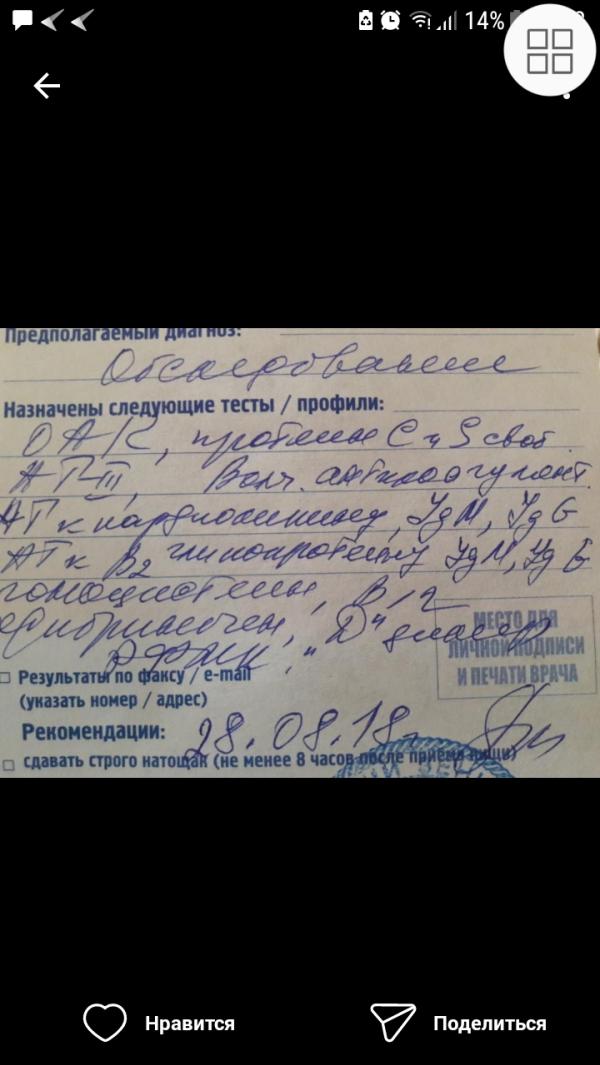 14%
Предполагаемый диагноз:
Обследование
Назначены следующие тесты / профили:
ОАК, протеины С и S своб.
АТ-III, Волч. антикоагулянт.
АТ к кардиолипину, IgM, IgG
АТ к B2 гликопротеину IgM, IgG
гомоцистеин, B12
фибриноген, "Д" димер
РФМК,
МЕСТО ДЛЯ
ЛИЧНОЙ ПОДПИСИ
И ПЕЧАТИ ВРАЧА
Результаты по факсу / e-mail
(указать номер / адрес)
Рекомендации:
28.08.18г.
сдавать строго натощак (не менее 8 часов после приема пищи)
Нравится
Поделиться